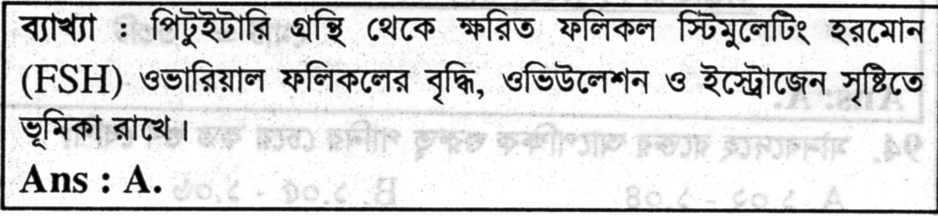 ব্যাখ্যা : পিটুইটারি গ্রন্থি থেকে ক্ষরিত ফলিকল স্টিমুলেটিং হরমোন
(FSH) ওভারিয়াল ফলিকলের বৃদ্ধি, ওভিউলেশন ও ইস্ট্রোজেন সৃষ্টিতে
ভূমিকা রাখে।
Ans : A.